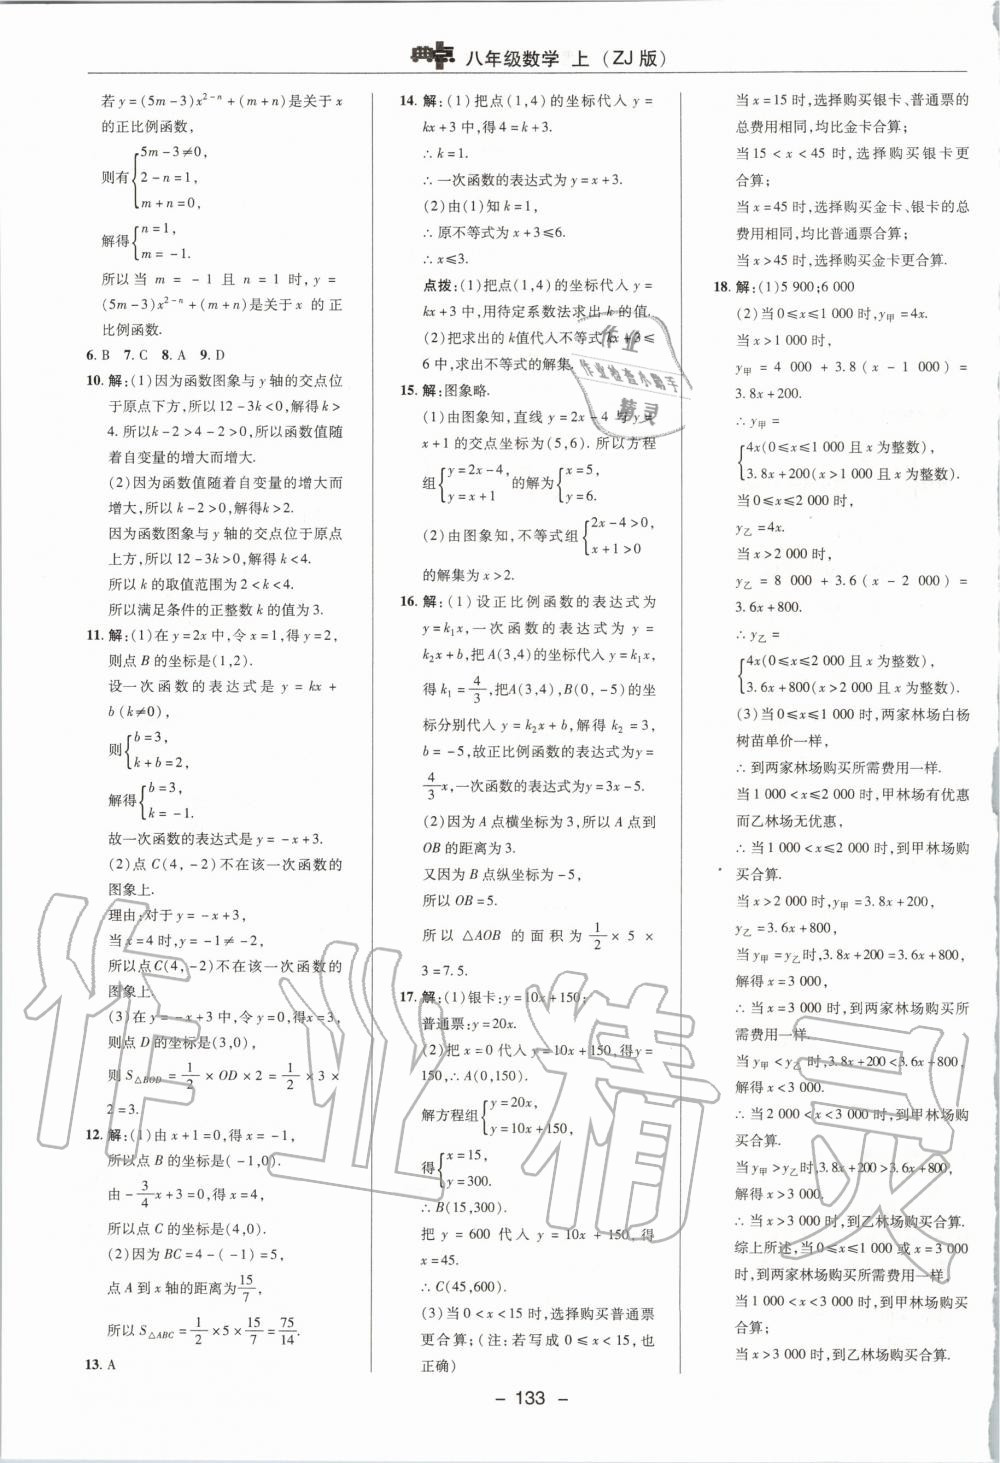 典点 八年级数学 上(ZJ版)
若y=(5m-3)x²⁻ⁿ+(m+n)是关于x
的正比例函数,
则有{5m-3≠0,
2-n=1,
m+n=0,
解得{n=1,
m=-1.
所以当 m=-1 且 n=1 时,y=
(5m-3)x²⁻ⁿ+(m+n)是关于x 的正
比例函数.
6. B 7. C 8. A 9. D
10. 解:(1)因为函数图象与y轴的交点位
于原点下方,所以12-3k<0,解得k>
4.所以k-2>4-2>0,所以函数值随
着自变量的增大而增大.
(2)因为函数值随着自变量的增大而
增大,所以k-2>0,解得k>2.
因为函数图象与y轴的交点位于原点
上方,所以12-3k>0,解得k<4.
所以k的取值范围为2<k<4.
所以满足条件的正整数k的值为3.
11. 解:(1)在y=2x中,令x=1,得y=2,
则点B的坐标是(1,2).
设一次函数的表达式是 y=kx+
b(k≠0),
则{b=3,
k+b=2,
解得{b=3,
k=-1.
故一次函数的表达式是y=-x+3.
(2)点C(4,-2)不在该一次函数的
图象上.
理由:对于y=-x+3,
当x=4时,y=-1≠-2,
所以点C(4,-2)不在该一次函数的
图象上.
(3)在y=-x+3中,令y=0,得x=3,
则点D的坐标是(3,0),
则S△BOD=1/2×OD×2=1/2×3×
2=3.
12. 解:(1)由x+1=0,得x=-1,
所以点B的坐标是(-1,0).
由-3/4x+3=0,得x=4,
所以点C的坐标是(4,0).
(2)因为BC=4-(-1)=5,
点A到x轴的距离为15/7,
所以S△ABC=1/2×5×15/7=75/14.
13. A
14. 解:(1)把点(1,4)的坐标代入y=
kx+3中,得4=k+3.
∴k=1.
∴一次函数的表达式为y=x+3.
(2)由(1)知k=1,
∴原不等式为x+3≤6.
∴x≤3.
点拨:(1)把点(1,4)的坐标代入y=
kx+3,用待定系数法求出k的值.
(2)把求出的k值代入不等式kx+3≤
6中,求出不等式的解集.
15. 解:图象略.
(1)由图象知,直线y=2x-4与y=
x+1的交点坐标为(5,6).所以方程
组{y=2x-4,
y=x+1 的解为{x=5,
y=6.
(2)由图象知,不等式组{2x-4>0,
x+1>0
的解集为x>2.
16. 解:(1)设正比例函数的表达式为
y=k₁x,一次函数的表达式为y=
k₂x+b,把A(3,4)的坐标代入y=k₁x,
得k₁=4/3,把A(3,4),B(0,-5)的坐
标分别代入y=k₂x+b,解得k₂=3,
b=-5,故正比例函数的表达式为y=
4/3x,一次函数的表达式为y=3x-5.
(2)因为A点横坐标为3,所以A点到
OB的距离为3.
又因为B点纵坐标为-5,
所以OB=5.
所以△AOB的面积为1/2×5×
3=7.5.
17. 解:(1)银卡:y=10x+150;
普通票:y=20x.
(2)把x=0代入y=10x+150,得y=
150,∴A(0,150).
解方程组{y=20x,
y=10x+150,
得{x=15,
y=300.
∴B(15,300).
把 y=600 代入 y=10x+150,得
x=45.
∴C(45,600).
(3)当0<x<15时,选择购买普通票
更合算;(注:若写成0≤x<15,也
正确)
当x=15时,选择购买银卡、普通票的
总费用相同,均比金卡合算;
当15<x<45时,选择购买银卡更
合算;
当x=45时,选择购买金卡、银卡的总
费用相同,均比普通票合算;
当x>45时,选择购买金卡更合算.
18. 解:(1)5 900;6 000
(2)当0≤x≤1 000时,y甲=4x.
当x>1 000时,
y甲=4 000+3.8(x-1 000)=
3.8x+200.
∴y甲=
{4x(0≤x≤1 000且x为整数),
3.8x+200(x>1 000且x为整数).
当0≤x≤2 000时,
y乙=4x.
当x>2 000时,
y乙=8 000+3.6(x-2 000)=
3.6x+800.
∴y乙=
{4x(0≤x≤2 000且x为整数),
3.6x+800(x>2 000且x为整数).
(3)当0≤x≤1 000时,两家林场白杨
树苗单价一样,
∴到两家林场购买所需费用一样.
当1 000<x≤2 000时,甲林场有优惠
而乙林场无优惠,
∴当1 000<x≤2 000时,到甲林场购
买合算.
当x>2 000时,y甲=3.8x+200,
y乙=3.6x+800,
当y甲=y乙时,3.8x+200=3.6x+800,
解得x=3 000.
∴当x=3 000时,到两家林场购买所
需费用一样.
当y甲<y乙时,3.8x+200<3.6x+800,
解得x<3 000.
∴当2 000<x<3 000时,到甲林场购
买合算.
当y甲>y乙时,3.8x+200>3.6x+800,
解得x>3 000.
∴当x>3 000时,到乙林场购买合算.
综上所述,当0≤x≤1 000或x=3 000
时,到两家林场购买所需费用一样,
当1 000<x<3 000时,到甲林场购买
合算;
当x>3 000时,到乙林场购买合算.
- 133 -
作业
作业检查小助手
精灵
作业精灵